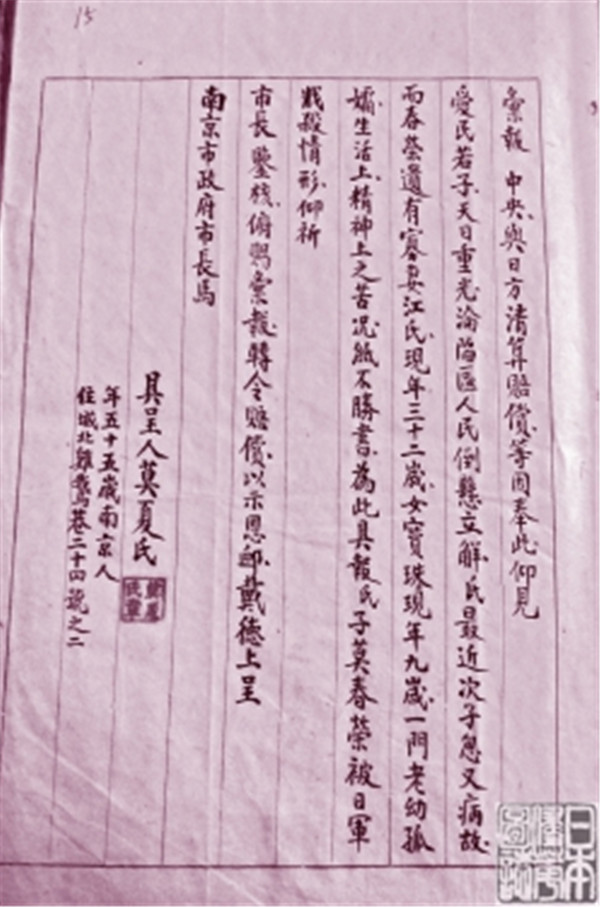 15
彙報中央與日方清算賠償等因奉此仰見
愛民若子天日重光淪陷區人民倒懸立解氏最近次子忽又病故
而春榮遺有寡妻江氏現年三十二歲女寶珠現年九歲一門老幼孤
孀生活上精神上之苦況紙不勝書為此具報氏子莫春榮被日軍
戕殺情形仰祈
市長鑒核俯賜彙報轉令賠償以示恩卹戴德上呈
南京市政府市長馬
具呈人莫夏氏
年五十五歲南京人
住城北雞鵞巷二十四號之二